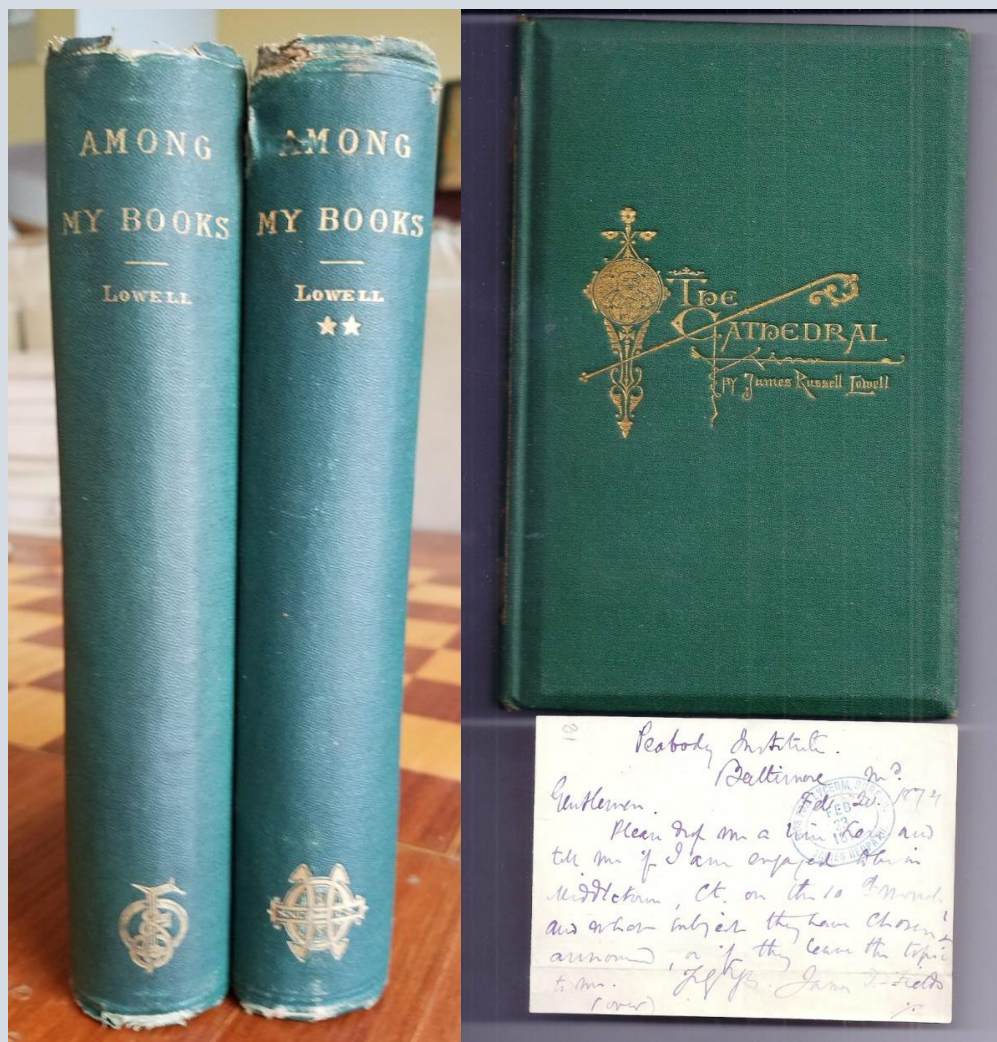 AMONG
MY BOOKS
LOWELL
AMONG
MY BOOKS
LOWELL
★★
THE
CATHEDRAL
BY James Russell Lowell
Peabody Institute.
Baltimore Md.
Gentlemen. Feb 20. 1874
Please drop me a line here and
tell me if I am engaged to be in
Middletown, Ct. on the 10 of March
and what subject they have chosen &
announced, or if they leave the topic
to me. James T. Fields
(over)
FEB